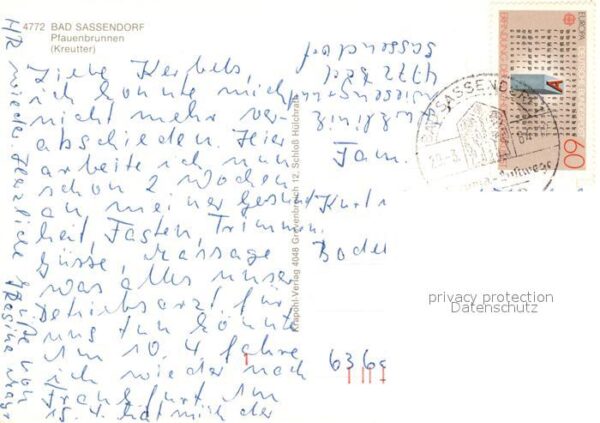 4772 BAD SASSENDORF
Pfauenbrunnen
(Kreutter)
Liebe Kerbels,
ich konnte mich
nicht mehr ver-
abschieden. Hier
arbeite ich nun
schon 2 Wochen
an meiner Gesund
heit, Fasten, Trimmen.
Güsse, Massage
was alles unser
Betriebsarzt für
uns tun könnte
Am 10. 4. fahre
ich wieder nach
Frankfurt. Am
15. 4. hat mich der
HR wieder. Herzliche Grüße von
Regina
Krapohl-Verlag 4048 Grevenbroich 12, Schloß Hülchrath
4772 Bad
Sassendorf
Fam.
Kurt
636
EUROPA
60
BAD SASSENDORF
privacy protection
Datenschutz